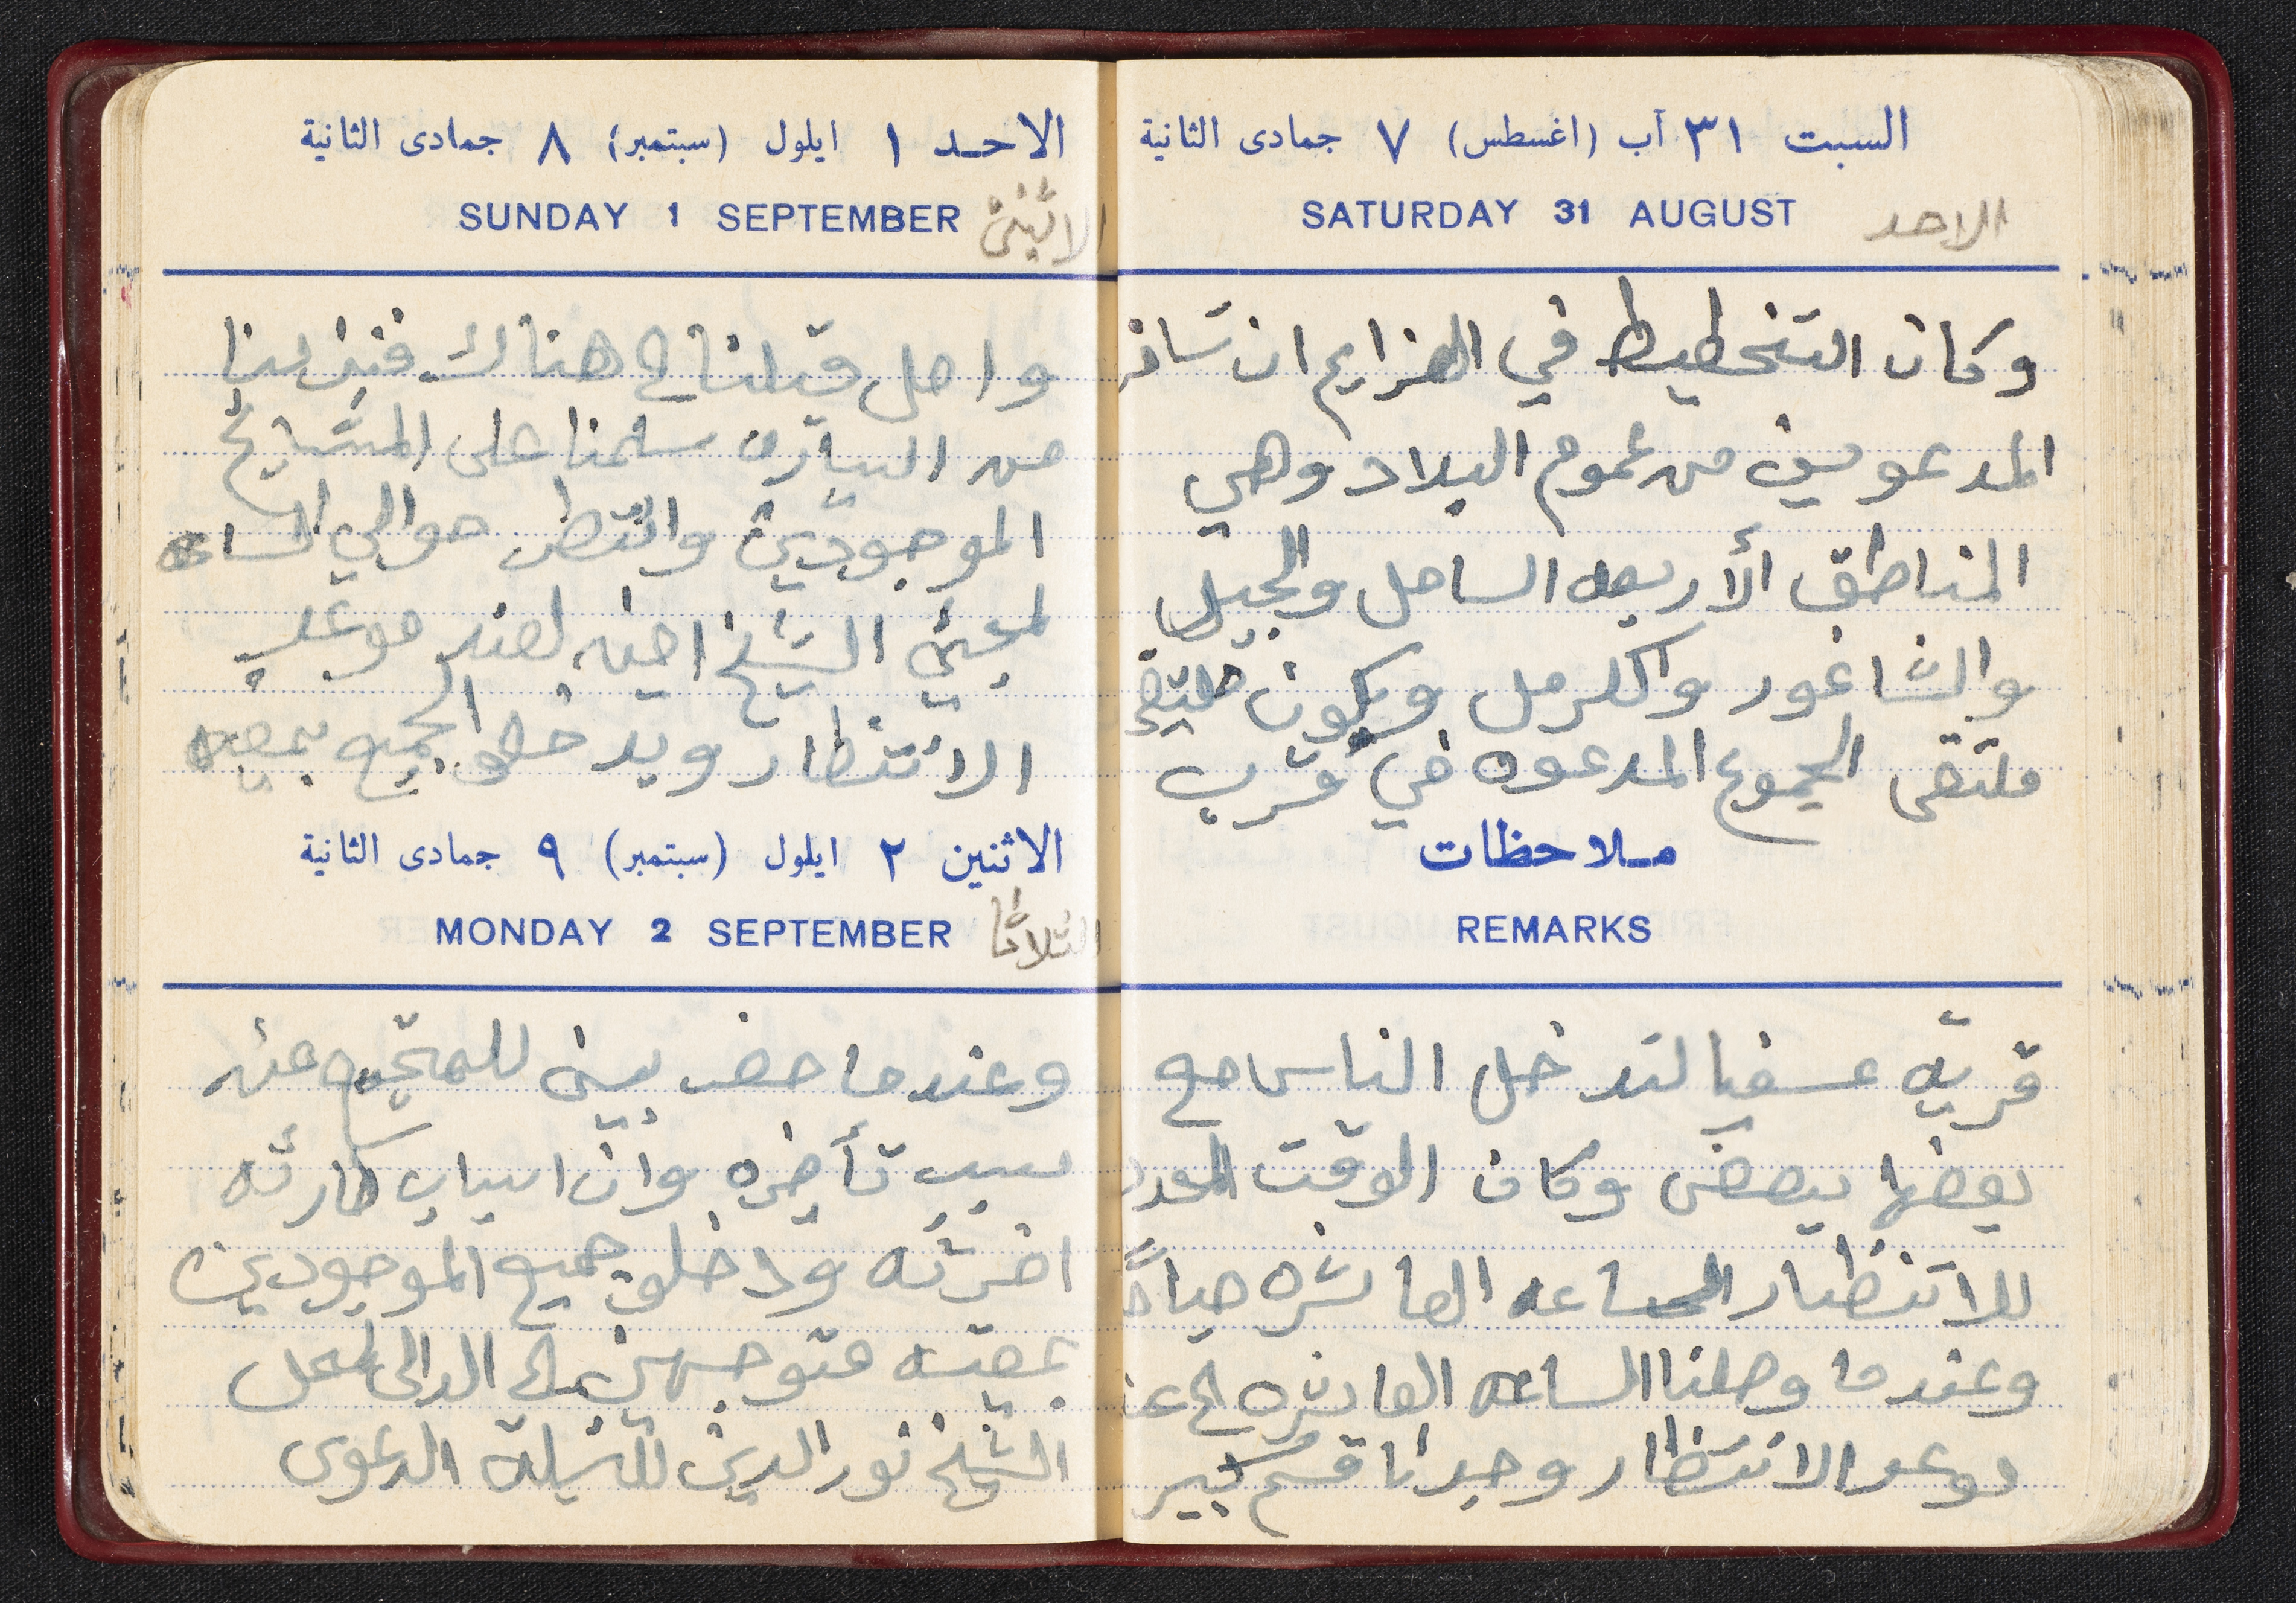 السبت ٣١ آب (اغسطس) ٧ جمادى الثانية
SATURDAY 31 AUGUST الاحد
وكان التخطيط في ان تسافر
المدعوين من عموم البلاد وهي
المناطق الأربعه الساحل والجبل
والشاغور والكرمل ويكون
ملتقى الجموع المدعوه في قرب
ملاحظات
REMARKS
قريّه عسفيا لتدخل الناس مع
بعضها ببعض وكان الوقت المحدد
للانتظار الساعه العاشره صباحاً
وعندما وصلنا الساعه العاشره
موعد الانتظار وجدنا قسم كبير
الاحد ١ ايلول (سبتمبر) ٨ جمادى الثانية
SUNDAY 1 SEPTEMBER الاثنين
واصل قبلنا الى هناك فنزلنا
من السياره سلمنا على المشايخ
الموجودين وانتظر حوالي الساعه
لمجيئ الشيخ امين بعد موعد
الانتظار الجميع بمعيته
الاثنين ٢ ايلول (سبتمبر) ٩ جمادى الثانية
MONDAY 2 SEPTEMBER الثلاثا
وعندما حضر بين للجميع عن
سبب تأخيره وان اسباب طارئه
اخرته ودخلو جميع الموجودين
بمعيته متوجهين الى الدالى لمحل
الشيخ نور الدين لتلبية الدعوى